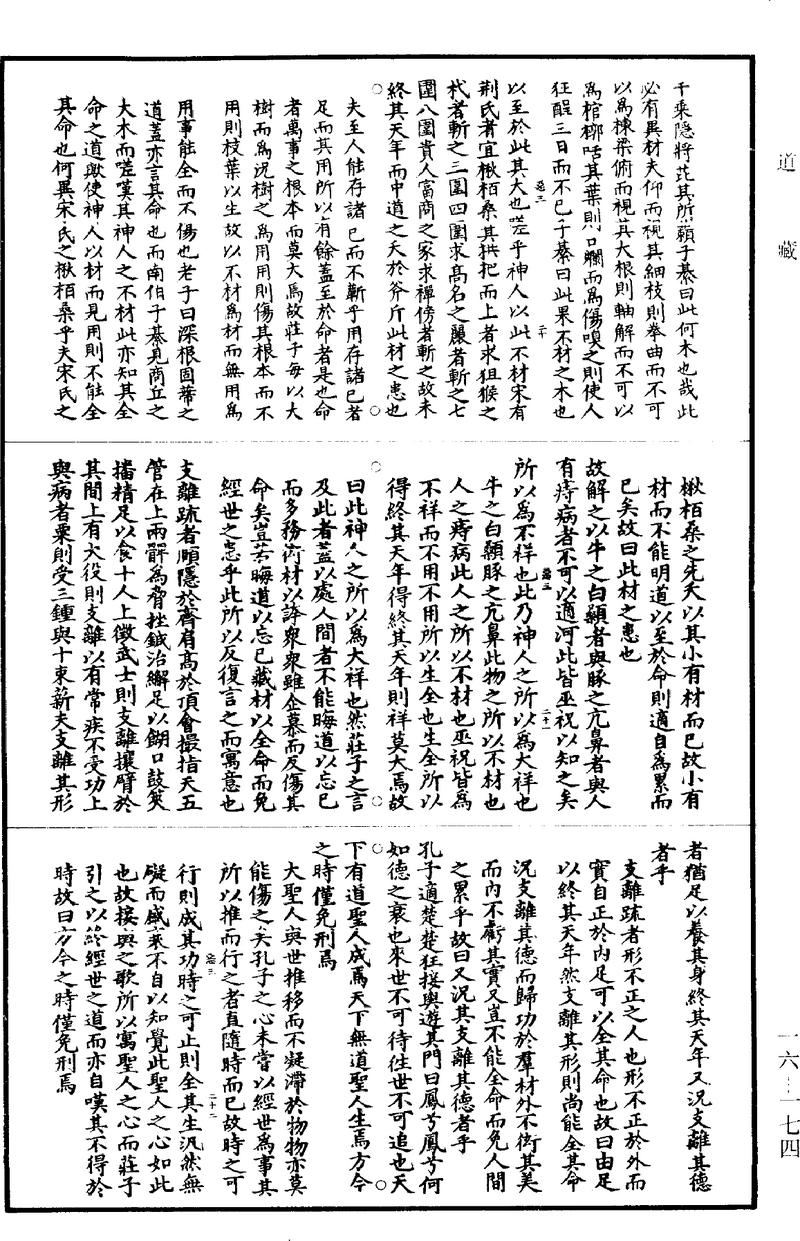 千乘隱將芘其所藾子綦曰此何木也哉此
必有異材夫仰而視其細枝則拳曲而不可
以為棟梁俯而視其大根則軸解而不可以
為棺槨咶其葉則口爛而為傷嗅之則使人
狂酲三日而不已子綦曰此果不材之木也
以至於此其大也嗟乎神人以此不材宋有
荆氏者宜楸栢桑其拱把而上者求狙猴之
杙者斬之三圍四圍求高名之麗者斬之七
圍八圍貴人富商之家求禪傍者斬之故未
終其天年而中道之夭於斧斤此材之患也
夫至人能存諸已而不蘄乎用存諸已者
足而其用所以有餘蓋至於命者是也命
者萬事之根本而莫大焉故莊子每以大
樹而為況樹之為用用則傷其根本而不
用則枝葉以生故以不材為材而無用為
用事能全而不傷也老子曰深根固蔕之
道蓋亦言其命也而南伯子綦見商丘之
大木而嗟嘆其神人之不材此亦知其全
命之道歟使神人以材而見用則不能全
其命也何異宋氏之楸栢桑乎夫宋氏之
楸栢桑之先夭以其小有材而已故小有
材而不能明道以至於命則適自為累而
已矣故曰此材之患也
故解之以牛之白顙者與豚之亢鼻者與人
有痔病者不可以適河此皆巫祝以知之矣
所以為不祥也此乃神人之所以為大祥也
牛之白顙豚之亢鼻此物之所以不材也
人之痔病此人之所以不材也巫祝皆為
不祥而不用不用所以生全也生全所以
得終其天年得終其天年則祥莫大焉故
曰此神人之所以為大祥也然莊子之言
及此者蓋以處人間者不能晦道以忘已
而多務衒材以誇衆衆雖企慕而反傷其
命矣豈若晦道以忘已藏材以全命而免
經世之患乎此所以反復言之而寓意也
支離疏者頤隱於齊肩高於頂會撮指天五
管在上兩髀為脅挫鍼治繲足以餬口鼓筴
播精足以食十人上徵武士則支離攘臂於
其間上有大役則支離以有常疾不受功上
與病者粟則受三鍾與十束薪夫支離其形
者猶足以養其身終其天年又況支離其德
者乎
支離疏者形不正之人也形不正於外而
實自正於内足可以全其命也故曰由足
以終其天年然支離其形則尚能全其命
況支離其德而歸功於羣材外不衒其美
而内不虧其實又豈不能全命而免人間
之累乎故曰又況其支離其德者乎
孔子適楚楚狂接輿遊其門曰鳳兮鳳兮何
如德之衰也來世不可待往世不可追也天
下有道聖人成焉天下無道聖人生焉方今
之時僅免刑焉
大聖人與世推移而不凝滯於物物亦莫
能傷之矣孔子之心未嘗以經世為事其
所以推而行之者直隨時而已故時之可
行則成其功時之可止則全其生汎然無
礙而感來不自以知覺此聖人之心如此
也故接輿之歌所以寓聖人之心而莊子
引之以終經世之道而亦自嘆其不得於
時故曰方今之時僅免刑焉
道藏
一六－一七四